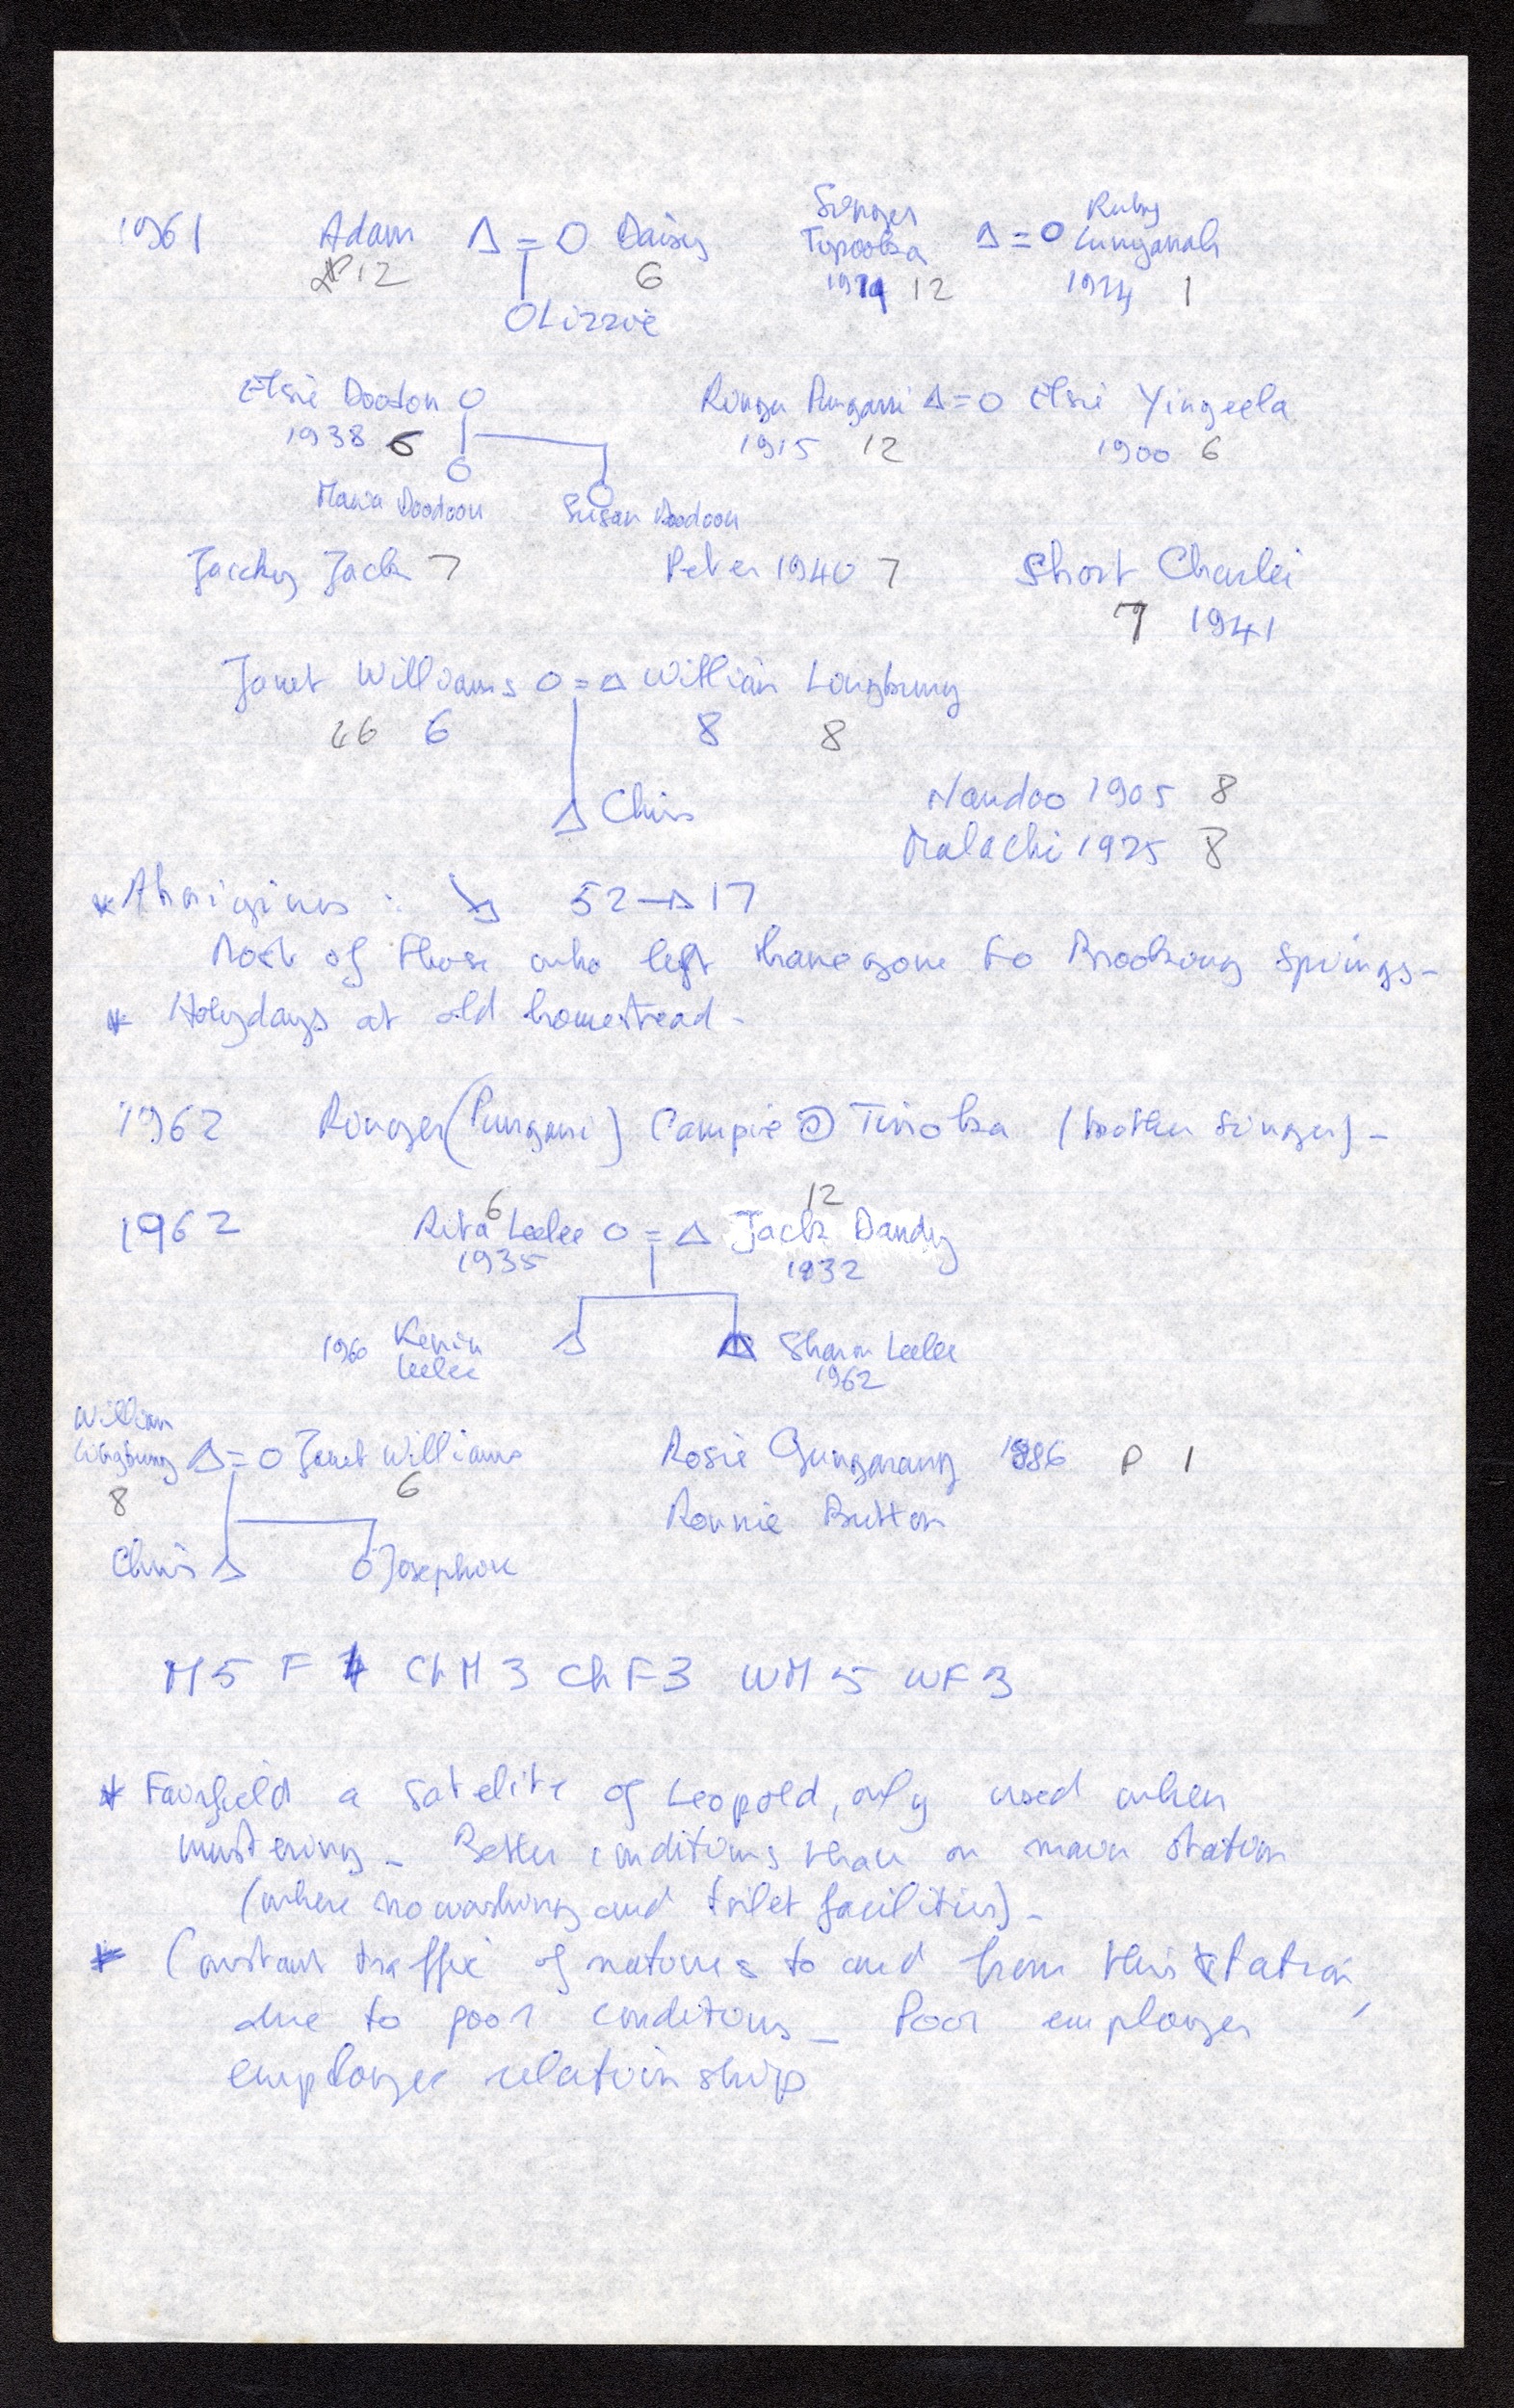 1961 Adam Δ = O Daisy Singer Δ = O Ruby
12 6 Topooka Lunganah
12 1924 1
O Lizzie
Elsie Doodon O Ringer Pungarri Δ = O Elsie Yingeela
1938 6 1915 12 1900 6
O O
Maria Doodoon Susan Doodoon
Jacky Jack 7 Peter 1940 7 Short Charlie
7 1941
Janet Williams O = Δ William Longbung
6 8 8
Δ Chris Nandoo 1905 8
Malachi 1925 8
* Aborigines : ↘ 52 → 17
Most of those who left have gone to Brooking Springs -
* Holydays at old homestead -
1962 Ringer (Pungarri) Campie @ Tinoka (brother Singer) -
6 12
1962 Rita Leelee O = Δ Jack Dandy
1935 1932
1960 Kevin Δ Sharon Leelee
Leelee 1962
William
Longbung Δ = O Janet Williams Rosie Gunganang P 1
8 6
Ronnie Button
Chris Δ O Josephine
M 5 F ChM 3 ChF 3 WM 5 WF 3
* Fairfield a satelite of Leopold, only used when
mustering - Better conditions than on main station
(where no washing and toilet facilities) -
* Constant traffic of natives to and from this station,
due to poor conditions - Poor employer
employee relationship